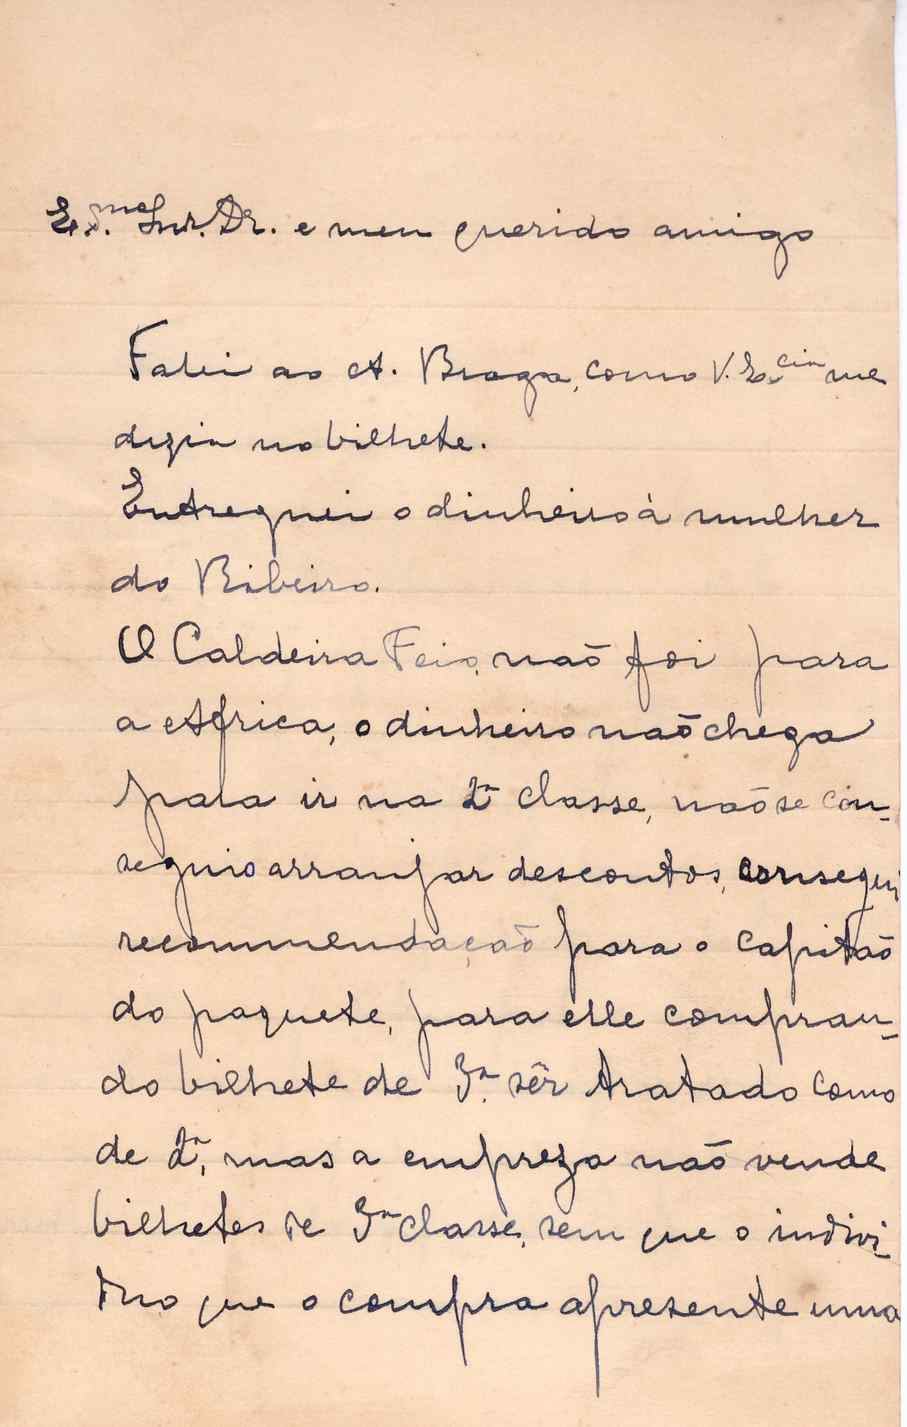 Ex.mo Snr. Dr. e meu querido amigo
Falei ao A. Braga, como V. Ex.cia me
dizia no bilhete.
Entreguei o dinheiro à mulher
do Ribeiro.
O Caldeira Feio, não foi para
a Africa, o dinheiro não chega
para ir na 2ª classe, não se con-
seguio arranjar descontos, consegui
recommendação para o capitão
do paquete, para elle compran-
do bilhete de 3ª. sêr tratado como
de 2ª, mas a empreza não vende
bilhetes de 3ª classe, sem que o indivi-
duo que o compra apresente uma